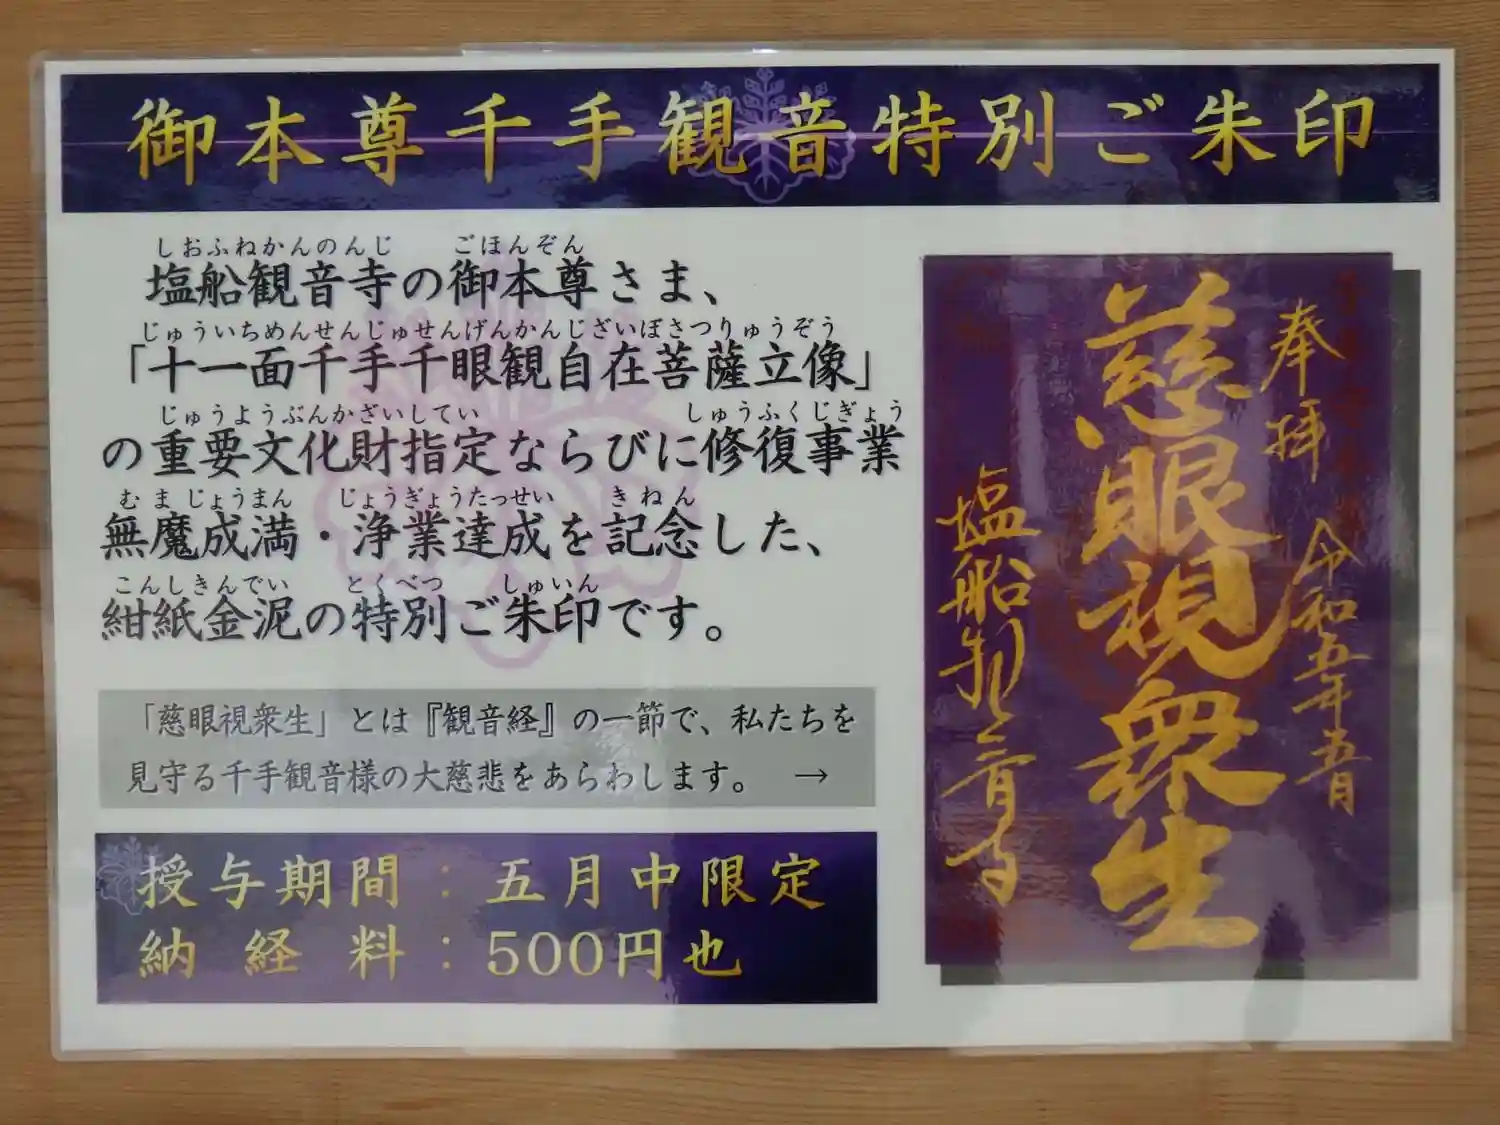 御本尊千手観音特別ご朱印
しおふねかんのんじ ごほんぞん
塩船観音寺の御本尊さま、
じゅういちめんせんじゅせんげんかんじざいぼさつりゅうぞう
「十一面千手千眼観自在菩薩立像」
じゅうようぶんかざいしてい しゅうふくじぎょう
の重要文化財指定ならびに修復事業
むま じょうまん じょうぎょうたっせい きねん
無魔成満・浄業達成を記念した、
こんしきんでい とくべつ しゅいん
紺紙金泥の特別ご朱印です。
「慈眼視衆生」とは『観音経』の一節で、私たちを
見守る千手観音様の大慈悲をあらわします。 →
授与期間：五月中限定
納経料：500円也
奉拝 令和五年五月
慈眼視衆生
塩船観音寺